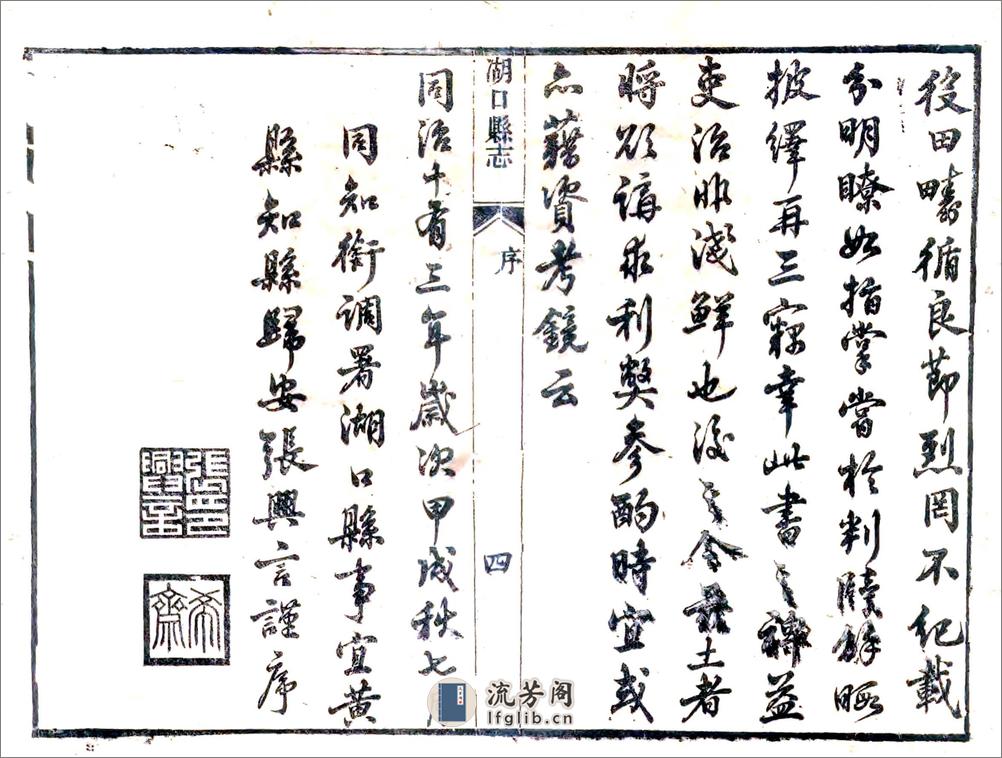 役田疇循良節烈罔不紀載
分明瞭如指掌當於判牘餘暇
披繹再三竊幸此書之裨益
吏治非淺鮮也後之令茲土者
將欲講求利弊參酌時宜或
亦藉資考鏡云
湖口縣志
序
四
同治十有三年歲次甲戌秋七
同知銜調署湖口縣事宜黃
縣知縣歸安張興言謹序
張興言印
希齋
流芳阁
lfglib.cn